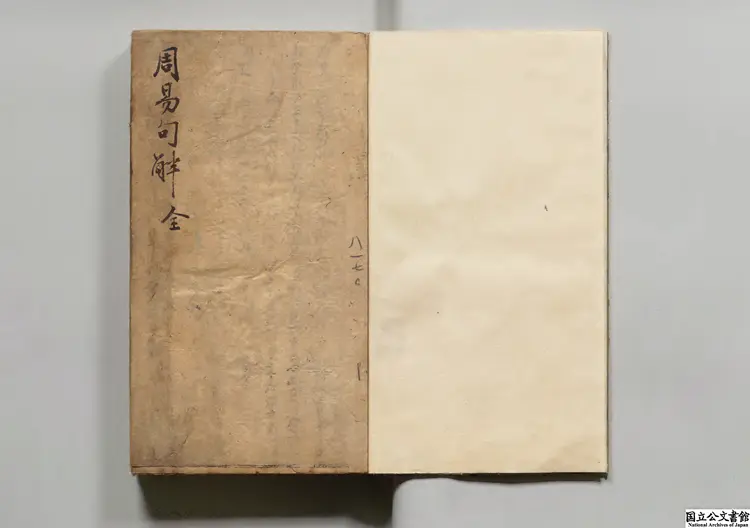 周易句觧 全
八一七〇
国立公文書館
National Archives of Japan